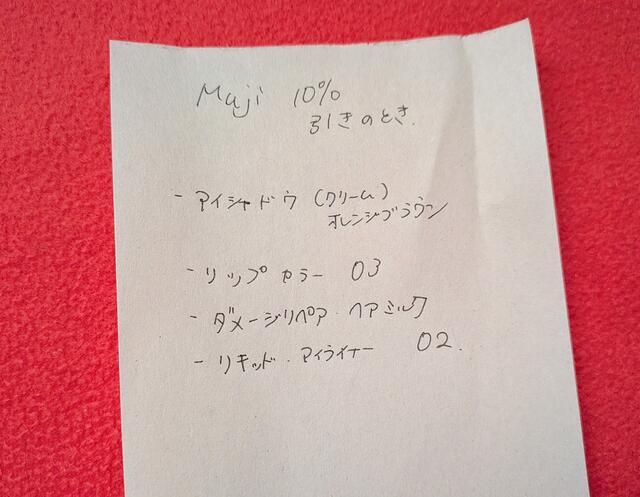 Muji 10%
引きのとき.
- アイシャドウ (クリーム)
オレンジブラウン
- リップカラー 03
- ダメージリペア・ヘアミルク
- リキッド・アイライナー 02.